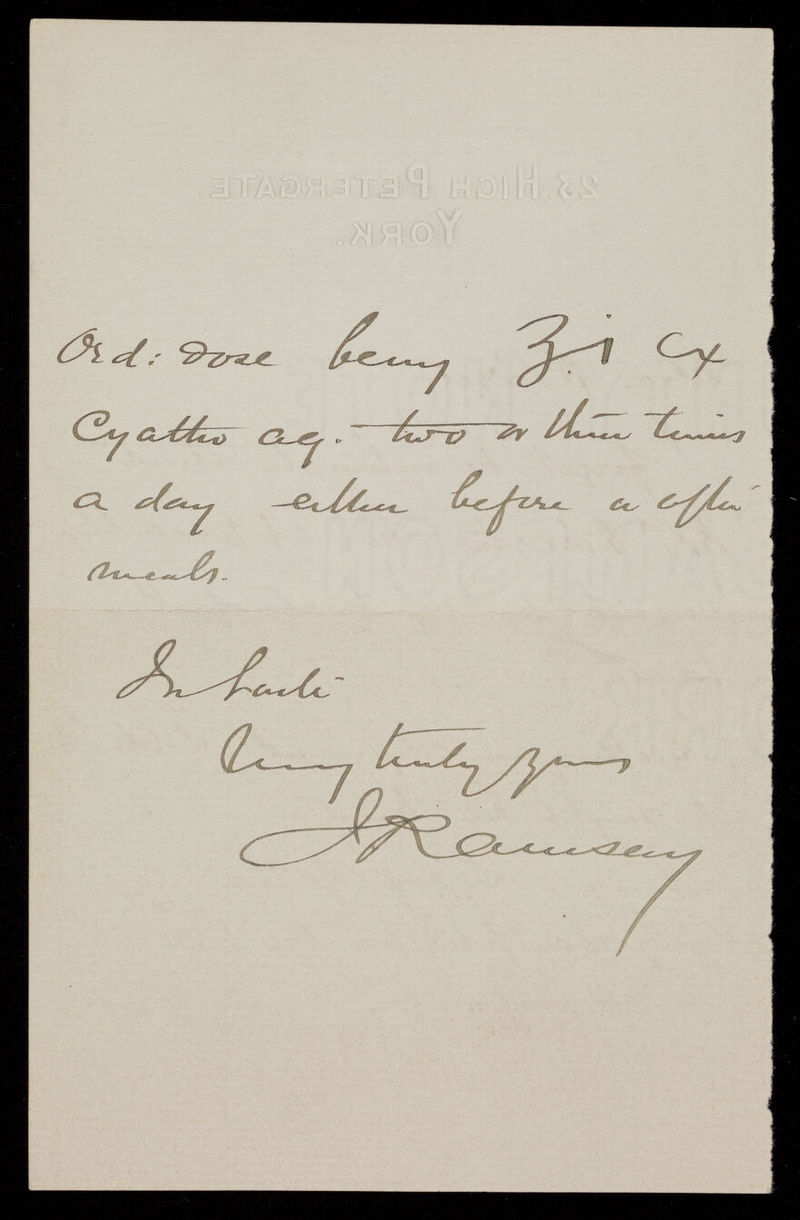 23. HIGH PETERGATE.
YORK.
Ord: dose being ʒ.i Ex
Cyatho aq. two or three times
a day either before or after
meals.
In haste
Very truly yours
J Ramsay